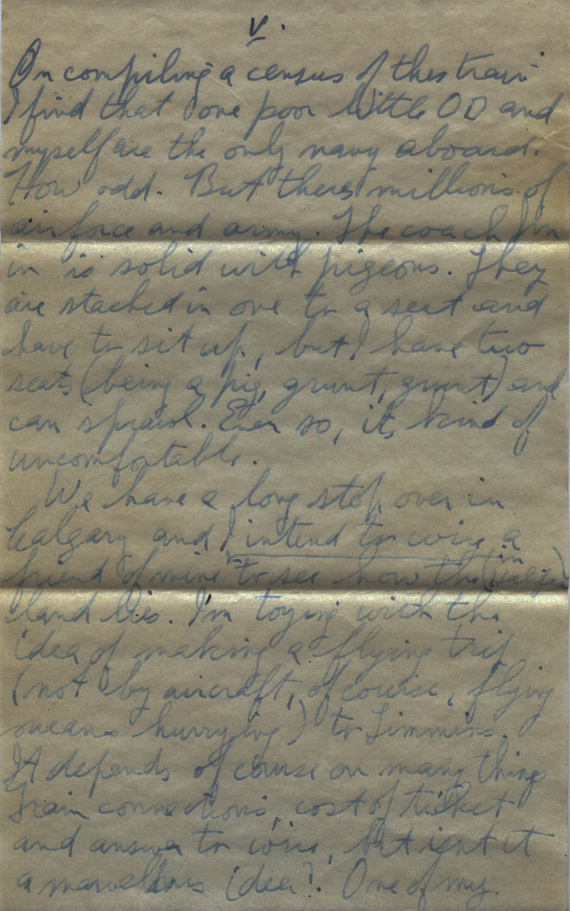 V.
On compiling a census of this train
I find that one poor little OD and
myself are the only navy aboard.
How odd. But theres millions of
airforce and army. The coach I'm
in is solid with pigeons. They
are stacked in one to a seat and
have to sit up, but I have two
seats (being a pig, grunt, grunt) and
can sprawl. Even so, its kind of
uncomfortable.
We have a long stop over in
Calgary and I intend to wire a
friend of mine to see how the (in
land lies. I'm toying with the
idea of making a flying trip
(not by aircraft, of course, flying
means hurrying) to Timmins.
It depends of course on many things
train connections, cost of ticket
and answer to wire, but isnt it
a marvellous idea? One of my